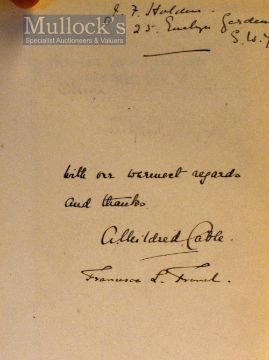 Mullock's
Specialist Auctioneers & Valuers
J. F. Holden.
25. Evelyn Gardens
S.W.7
With our warmest regards
and thanks
A. Mildred Cable.
Francesca L. French.